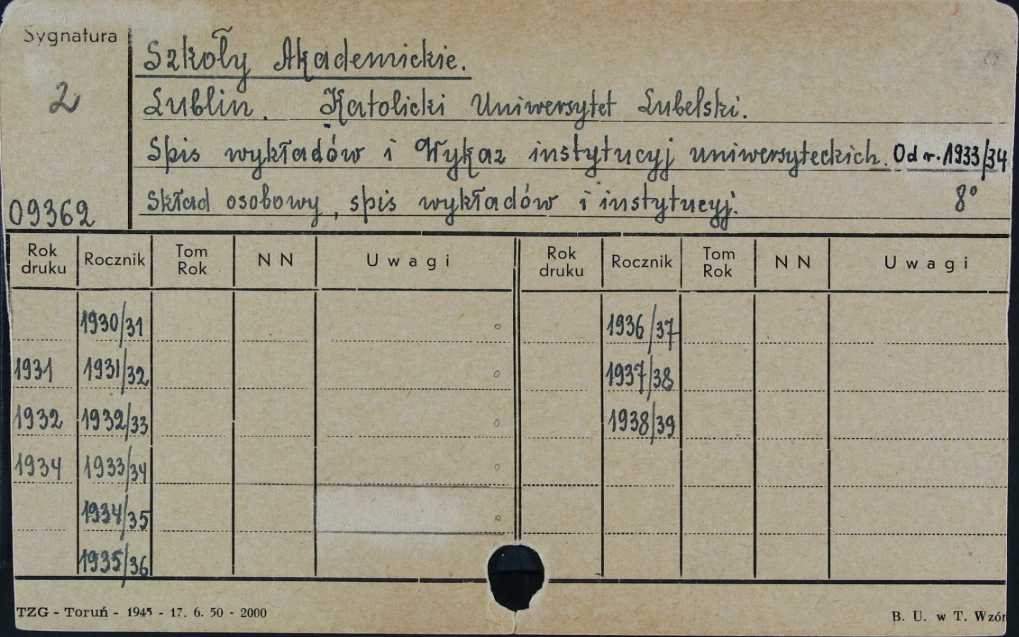 Sygnatura
2
09362
Szkoły Akademickie.
Lublin. Katolicki Uniwersytet Lubelski.
Spis wykładów i Wykaz instytucyj uniwersyteckich. Od r. 1933/34
Skład osobowy, spis wykładów i instytucyj. 8°
Rok druku Rocznik Tom Rok N N Uwagi Rok druku Rocznik Tom Rok N N Uwagi
1930/31 1936/37
1931 1931/32 1937/38
1932 1932/33 1938/39
1934 1933/34
1934/35
1935/36
TZG - Toruń - 1945 - 17. 6. 50 - 2000 B. U. w T. Wzór